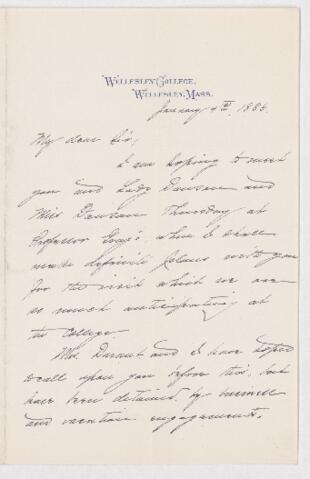 WELLESLEY COLLEGE,
WELLESLEY, MASS.
January 4th, 1885
My dear Sir;
I am hoping to meet
you and Lady Dawson and
Miss Dawson Thursday at
Professor Gray's, when I shall
make definite plans with you
for the visit which we are
so much anticipating at
the College.
Mrs. Durant and I have hoped
to call upon you before this, but
have been detained by business
and vacation engagements.